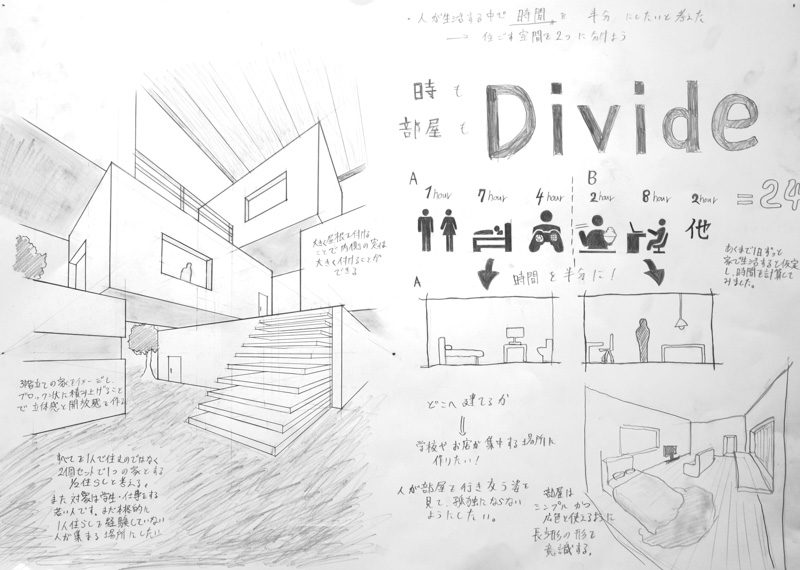 ・人が生活する中で時間を半分にしたいと考えた
→ 住こす空間を2つに分けよう
時も
部屋も
Divide
A
B
1hour 7hour 4hour 2hour 8hour 2hour =24
他
あくまで1日ずっと
家で生活すると仮定
し、時間を計算して
みました。
時間を半分に!
A
大きく学校を付ける
ことで内側の窓は
大きく付けることが
できる
3階立ての家をイメージし、
ブロック状に積み上げること
で立体感と開放感を作る
どこへ建てるか
学校やお店が集中する場所に
作りたい!
人が部屋を行き交う姿を
見て、孤独にならない
ようにしたい。
部屋は
シンプルかつ
広色と使えるように
長方形の形を
意識する。
決して1人で住むのではなく
2個セットで1つの家とする
居住らしと考える。
また対象は学生・仕事をする
若い人です。まだ本格的に
1人住らしを経験していない
人が集まる場所にしたい